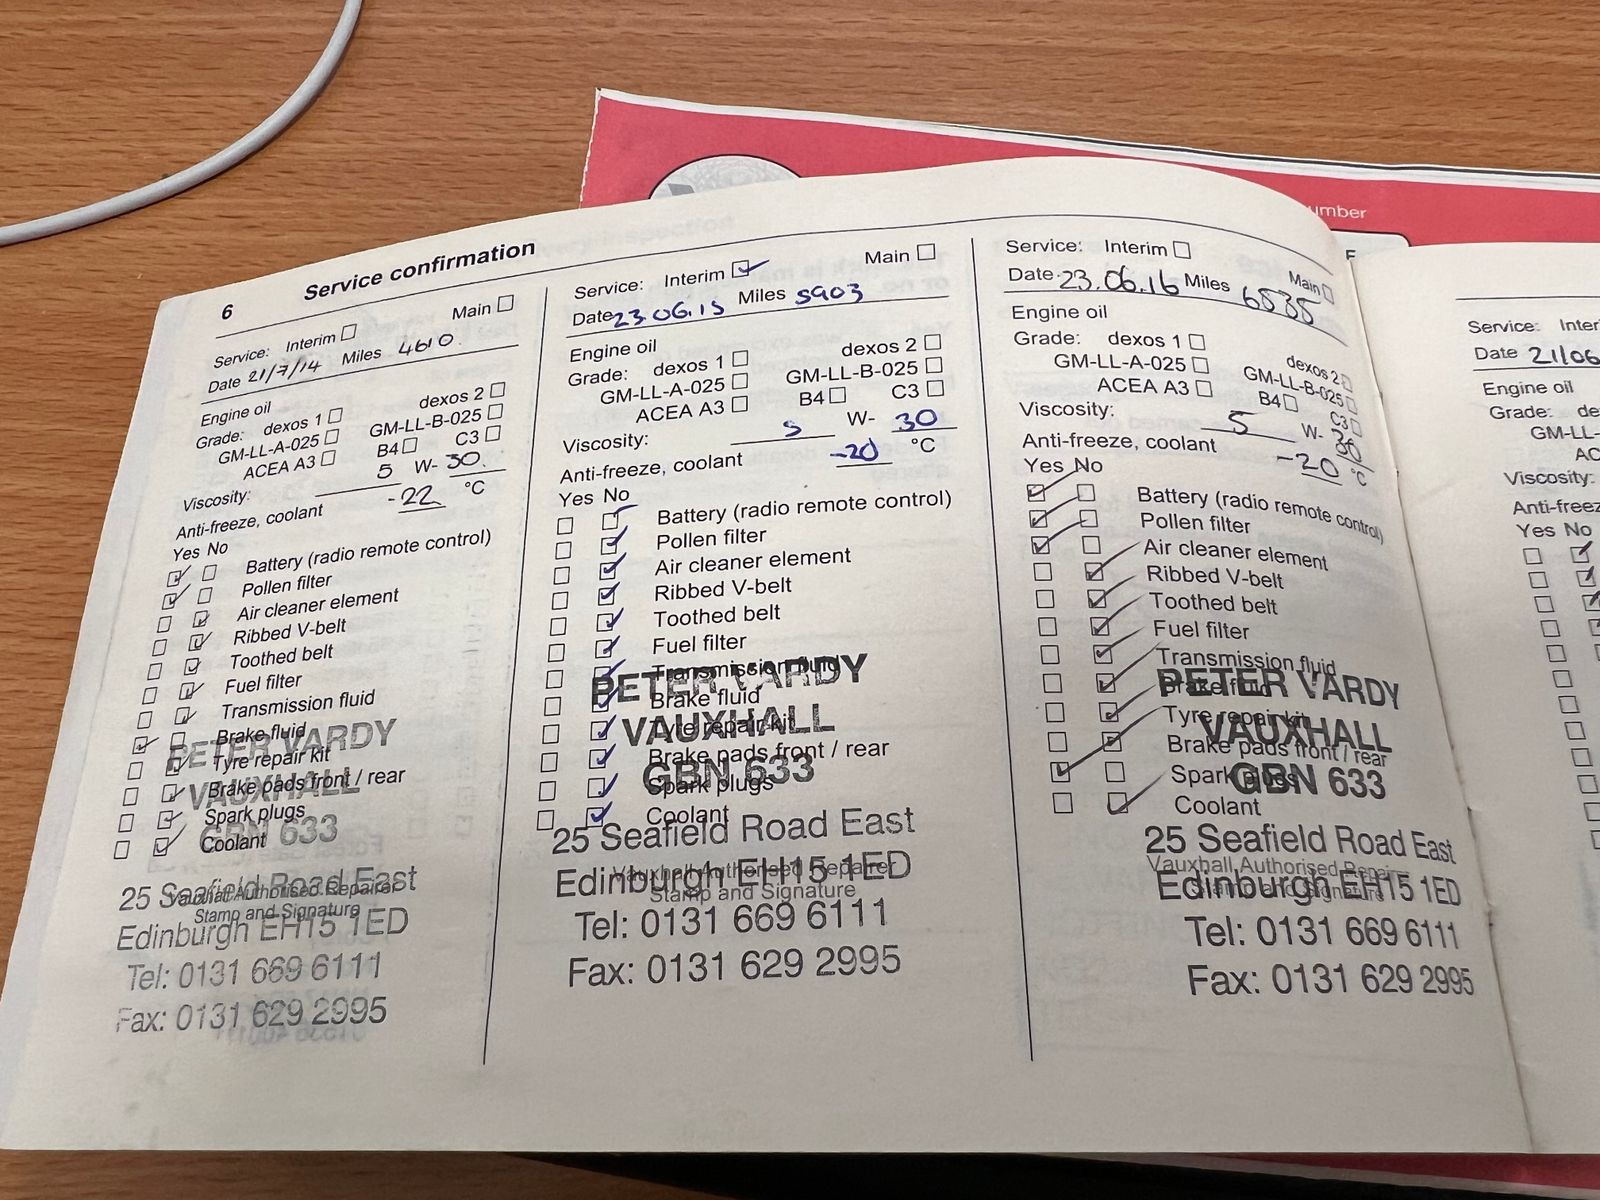 6 Service confirmation
Service: Interim Main
Date 21/7/14 Miles 4610
Engine oil
Grade: dexos 1 dexos 2
GM-LL-A-025 GM-LL-B-025
ACEA A3 B4 C3
Viscosity: 5 W- 30
Anti-freeze, coolant -22 °C
Yes No
Battery (radio remote control)
Pollen filter
Air cleaner element
Ribbed V-belt
Toothed belt
Fuel filter
Transmission fluid
Brake fluid
Tyre repair kit
Brake pads front / rear
Spark plugs
Coolant
PETER VARDY
VAUXHALL
GBN 633
25 Seafield Road East
Vauxhall Authorised Repairer
Stamp and Signature
Edinburgh EH15 1ED
Tel: 0131 669 6111
Fax: 0131 629 2995
Service: Interim Main
Date 23.06.15 Miles 5903
Engine oil
Grade: dexos 1 dexos 2
GM-LL-A-025 GM-LL-B-025
ACEA A3 B4 C3
Viscosity: 5 W- 30
Anti-freeze, coolant -20 °C
Yes No
Battery (radio remote control)
Pollen filter
Air cleaner element
Ribbed V-belt
Toothed belt
Fuel filter
Transmission fluid
Brake fluid
Tyre repair kit
Brake pads front / rear
Spark plugs
Coolant
PETER VARDY
VAUXHALL
GBN 633
25 Seafield Road East
Vauxhall Authorised Repairer
Stamp and Signature
Edinburgh EH15 1ED
Tel: 0131 669 6111
Fax: 0131 629 2995
Service: Interim Main
Date 23.06.16 Miles 6535
Engine oil
Grade: dexos 1 dexos 2
GM-LL-A-025 GM-LL-B-025
ACEA A3 B4 C3
Viscosity: 5 W- 30
Anti-freeze, coolant -20 °C
Yes No
Battery (radio remote control)
Pollen filter
Air cleaner element
Ribbed V-belt
Toothed belt
Fuel filter
Transmission fluid
Brake fluid
Tyre repair kit
Brake pads front / rear
Spark plugs
Coolant
PETER VARDY
VAUXHALL
GBN 633
25 Seafield Road East
Vauxhall Authorised Repairer
Stamp and Signature
Edinburgh EH15 1ED
Tel: 0131 669 6111
Fax: 0131 629 2995
umber
F
Service: Inter
Date 21/06
Engine oil
Grade: de
GM-LL-
AC
Viscosity:
Anti-freez
Yes No